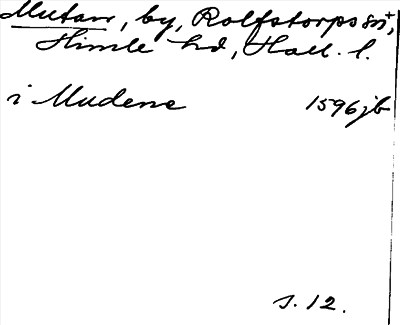 Mutan, by, Rolfstorps sn,
Himle hd, Hall. l.
i Mudene 1596 jb
s. 12.